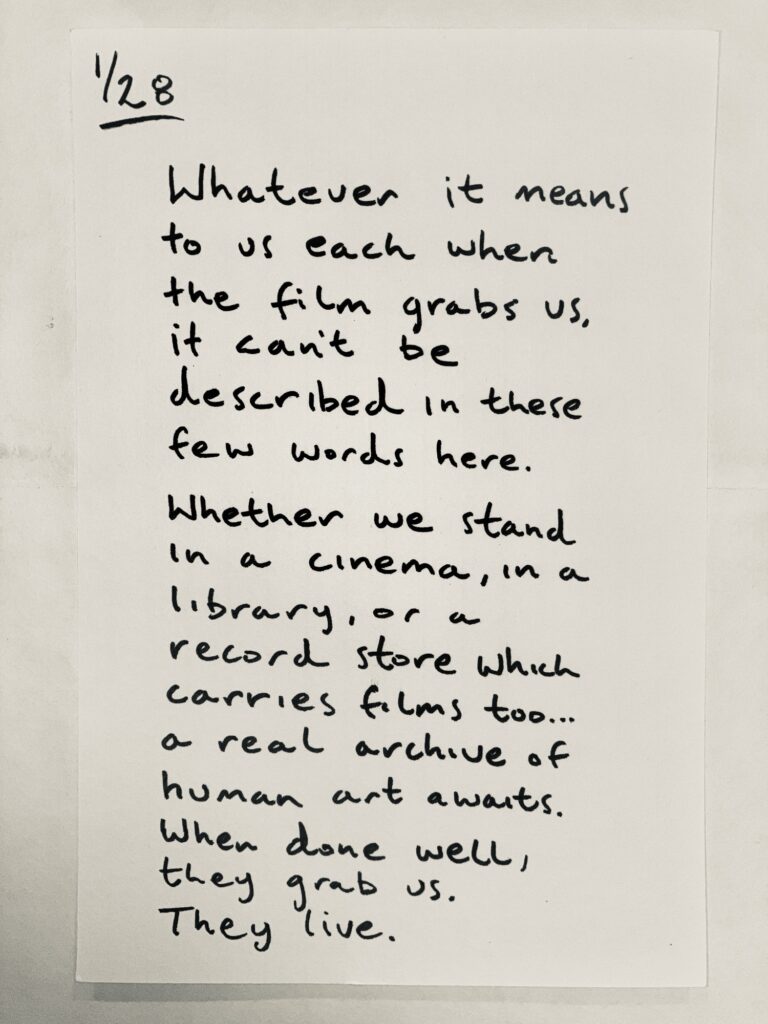 1/28
Whatever it means
to us each when
the film grabs us,
it can't be
described in these
few words here.
Whether we stand
in a cinema, in a
library, or a
record store which
carries films too...
a real archive of
human art awaits.
When done well,
they grab us.
They live.